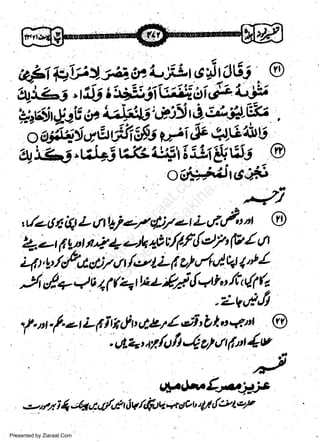 تفسیر نمونہ
۳۴۲
۲۱ وَقَالَ الَّذِي اشْتَرٰىهُ مِنْ مِّصْرَ لِامْرَاَتِهٖٓ اَكْرِمِيْ
مَثْوٰىهُ عَسٰٓى اَنْ يَّنْفَعَنَآ اَوْ نَتَّخِذَهٗ وَلَدًا ؕ وَكَذٰلِكَ
مَكَّنَّا لِيُوْسُفَ فِي الْاَرْضِ وَلِنُعَلِّمَهٗ مِنْ تَاْوِيْلِ الْاَحَادِيْثِ
وَاللّٰهُ غَالِبٌ عَلٰٓى اَمْرِهٖ وَلٰكِنَّ اَكْثَرَ النَّاسِ لَا يَعْلَمُوْنَ ○
۲۲ وَلَمَّا بَلَغَ اَشُدَّهٗٓ اٰتَيْنٰهُ حُكْمًا وَّعِلْمًا ؕ وَكَذٰلِكَ
نَجْزِي الْمُحْسِنِيْنَ ○
ترجمہ
۲۱ اور جس شخص نے اسے سرزمین مصر سے خریدا اس نے اپنی بیوی سے کہا :
اس کے مقام و منزلت کی تکریم کرنا شاید ہمارے لیے مفید ہو اور یا ہم اسے بیٹے
کے طور پر اپنا لیں اس طرح ہم نے یوسف کو اس سرزمین میں متمکن کر دیا ، (ہم نے
یہ کام کیا) تاکہ وہ خواب کی تعبیر سیکھ لے۔ خدا اپنے کام پر غالب ہے لیکن اکثر
لوگ نہیں جانتے۔
۲۲ اور جب وہ بلوغ و قوت کے مرحلے میں داخل ہوا تو ہم نے اسے "حکم" اور "علم"
عطا کیا اور اس طرح ہم نیک لوگوں کو جزا دیتے ہیں۔
تفسیر
عزیزِ مصر کے محل میں
Presented by Ziaraat.Com